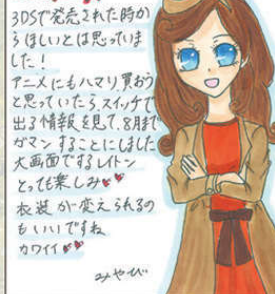 3DSで発売された時か
らほしいとは思っていま
した!
アニメにもハマリ、買おう
と思っていたら、スイッチで
出る情報を見て、8月まで
ガマンすることにしました
大画面でするレイトン
とっても楽しみ💕
衣装が変えられるの
もいいですね
カワイイ💕
みやび